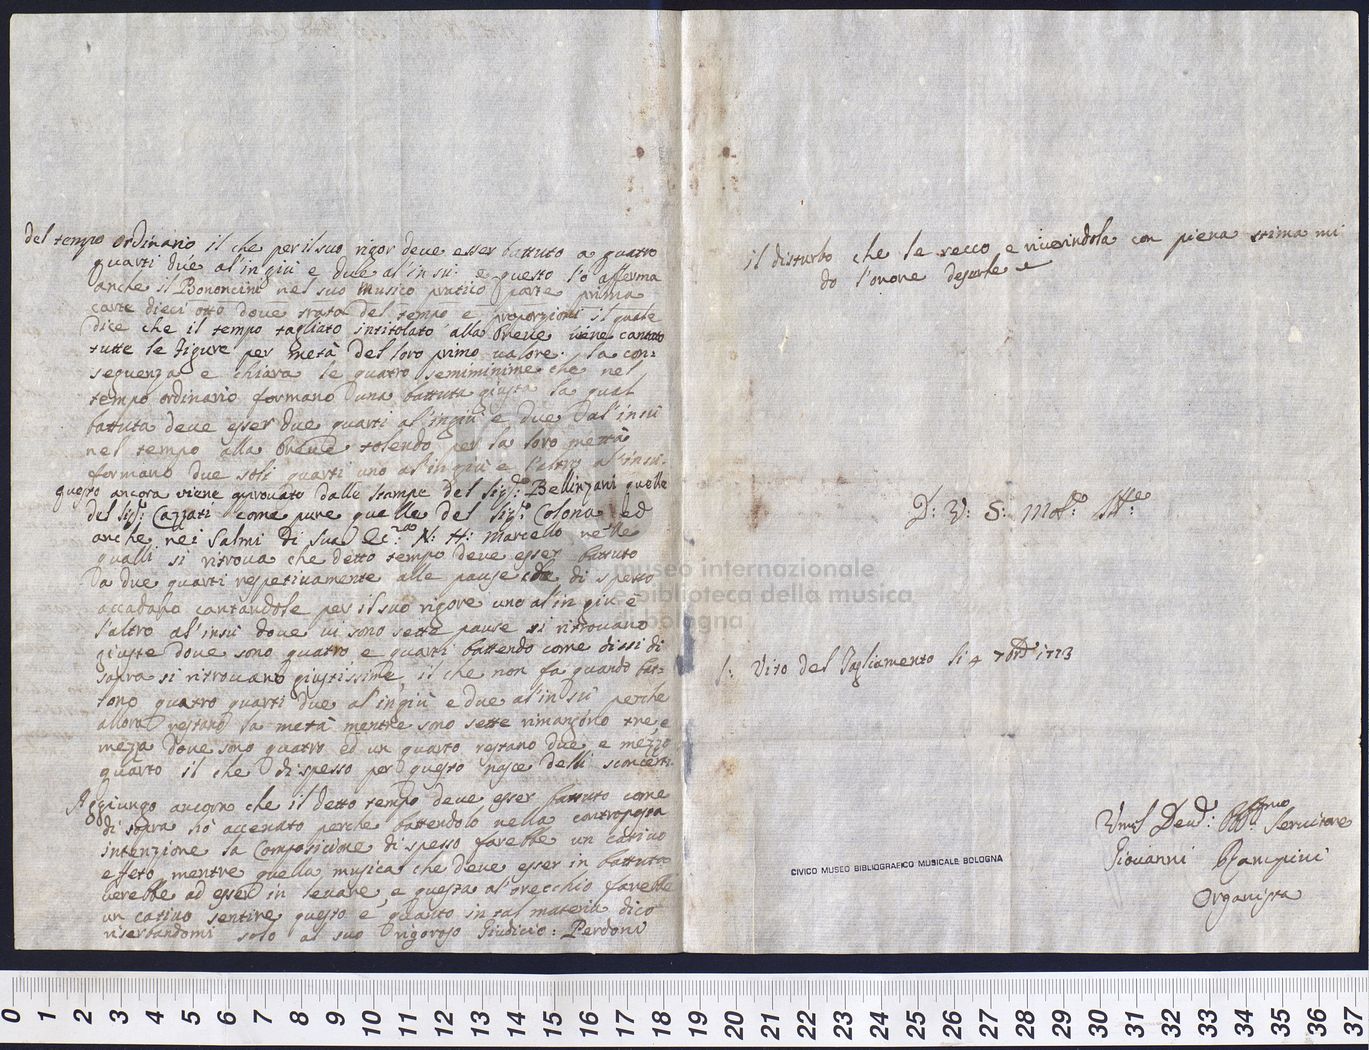 del tempo ordinario il che per il suo rigor deve esser battuto a quatro
quarti due al'ingiù e due al insù: e questo l'o afferma
anche il Bononcini nel suo Musico pratico parte prima
carte dieci otto dove trata del tempo e proporzioni il quale
dice che il tempo tagliato intitolato alla breve viene cantato
tutte le figure per metà del loro primo valore. la con=
seguenza e chiara le quatro semiminime che nel
tempo ordinario formano una battuta giusta la qual
battuta deve esser due quarti al'ingiù e due dal'insù
nel tempo alla breve tolendo per la loro mettà
formano due soli quarti uno al'ingiù e l'altro al'insù.
questo ancora viene aprovato dalle stampe del sig:r Bellinzani quelle
del sig:r Cazzati come pure quelle del sig:r Colona, ed
anche nei Salmi di Sua Ec:za N: H: Marcello nelle
qualli si ritrova che detto tempo deve esser battuto
a due quarti respetivamente alle pause che di spesso
accadano cantandole per il suo rigore uno al'in giù e
l'altro al'insù dove vi sono sette pause si ritrovano
giuste dove sono quatro e quarti battendo come dissi di
sopra si ritrovano giustissime, il che non fa quando bat=
tono quatro quarti due al'ingiù e due al'insù perche
allora restano la metà mentre sono sette rimangono tre e
meza dove sono quatro ed un quarto restano due e mezzo
quarto il che di spesso per questo nasce delli sconcerti.
Aggiungo ancora che il detto tempo deve esser battuto come
di sopra hò accenato perche battendolo nella contraposta
intenzione la Composizione di spesso farebbe un cativo
effeto mentre quella musica che deve esser in battuta
verebbe ad esser in levare, e questa al'orecchio farebbe
un cativo sentire questo e quanto in tal materia dico
riserbandomi solo al suo rigoroso Giudicio: Perdoni
il disturbo che le recco e riverindola con piena stima mi
do l'onore desserle
D: V: S: Mol:o Ill:e
S: Vito del Tagliamento li 4 7bre 1773
Umil Dev: Obb:mo Servitore
Giovanni Rampini
Organista
CIVICO MUSEO BIBLIOGRAFICO MUSICALE BOLOGNA
museo internazionale
e biblioteca della musica
di bologna
0 1 2 3 4 5 6 7 8 9 10 11 12 13 14 15 16 17 18 19 20 21 22 23 24 25 26 27 28 29 30 31 32 33 34 35 36 37